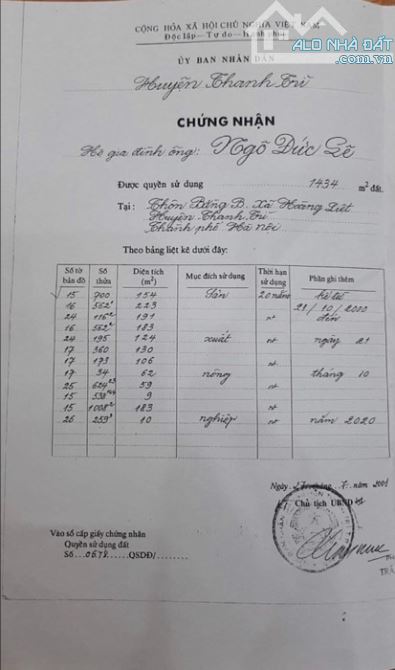 ALO NHÀ ĐẤT
.com.vn
CỘNG HÒA XÃ HỘI CHỦ NGHĨA VIỆT NAM
Độc lập - Tự do - Hạnh phúc
ỦY BAN NHÂN DÂN
Huyện Thanh Trì
CHỨNG NHẬN
Hộ gia đình ông: Ngô Đức Lễ
Được quyền sử dụng 1434 m² đất.
Tại: Thôn Bằng B. Xã Hoàng Liệt
Huyện Thanh Trì
Thành phố Hà Nội
Theo bảng liệt kê dưới đây:
Số tờ bản đồ Số thửa Diện tích (m²) Mục đích sử dụng Thời hạn sử dụng Phần ghi thêm
15 700 154 Sản 20 năm kể từ
16 562 223 21/10/2000
24 116² 191 nt đến
16 562² 183
24 195 124 xuất nt ngày 21
17 360 130
17 173 106 nt
17 34 62 nông nt tháng 10
25 624 59 nt
15 538 9
15 1008² 183 nt
26 259 10 nghiệp nt năm 2020
Ngày tháng năm 2001
Chủ tịch UBND
Vào sổ cấp giấy chứng nhận
Quyền sử dụng đất
Số QSDĐ/